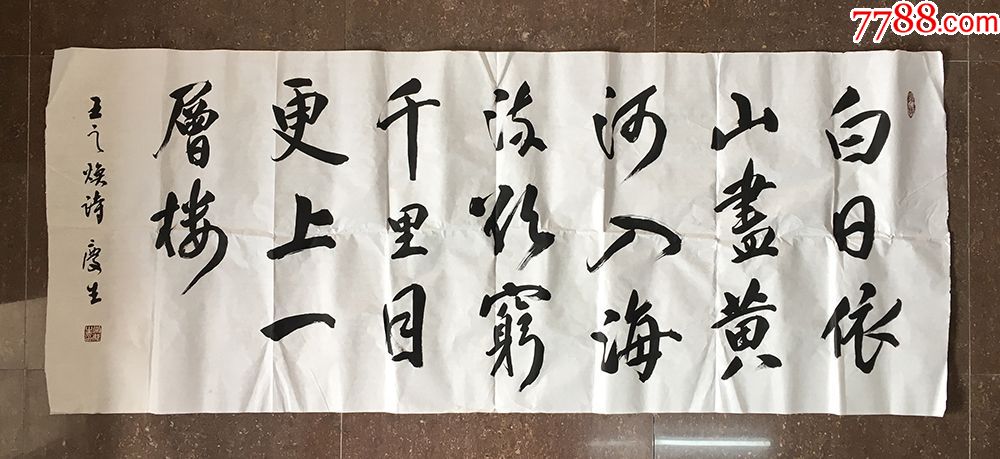 7788.com
白日依
山盡黄
河入海
流欲窮
千里目
更上一
層楼
王之焕诗 慶生